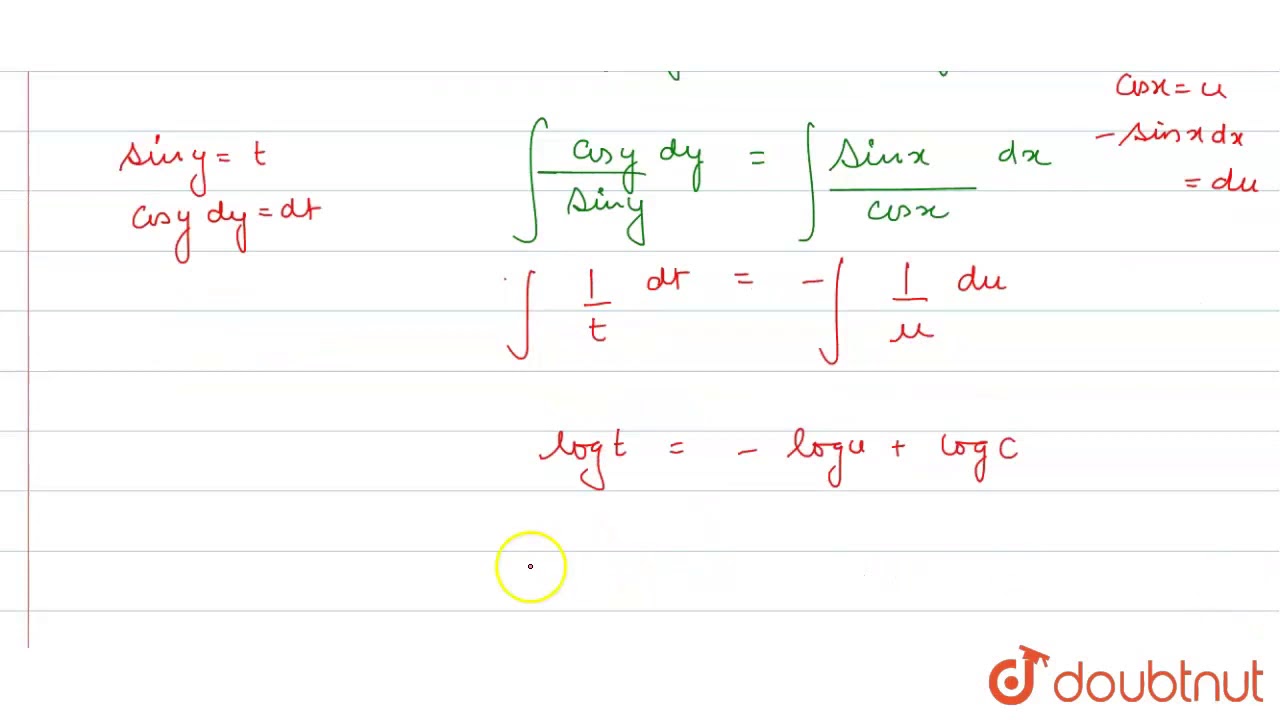 cosx = u
- sinx dx
= du
sin y = t
cosy dy = dt
∫ cosy/siny dy = ∫ sinx/cosx dx
∫ 1/t dt = - ∫ 1/u du
log t = - log u + log C
doubtnut